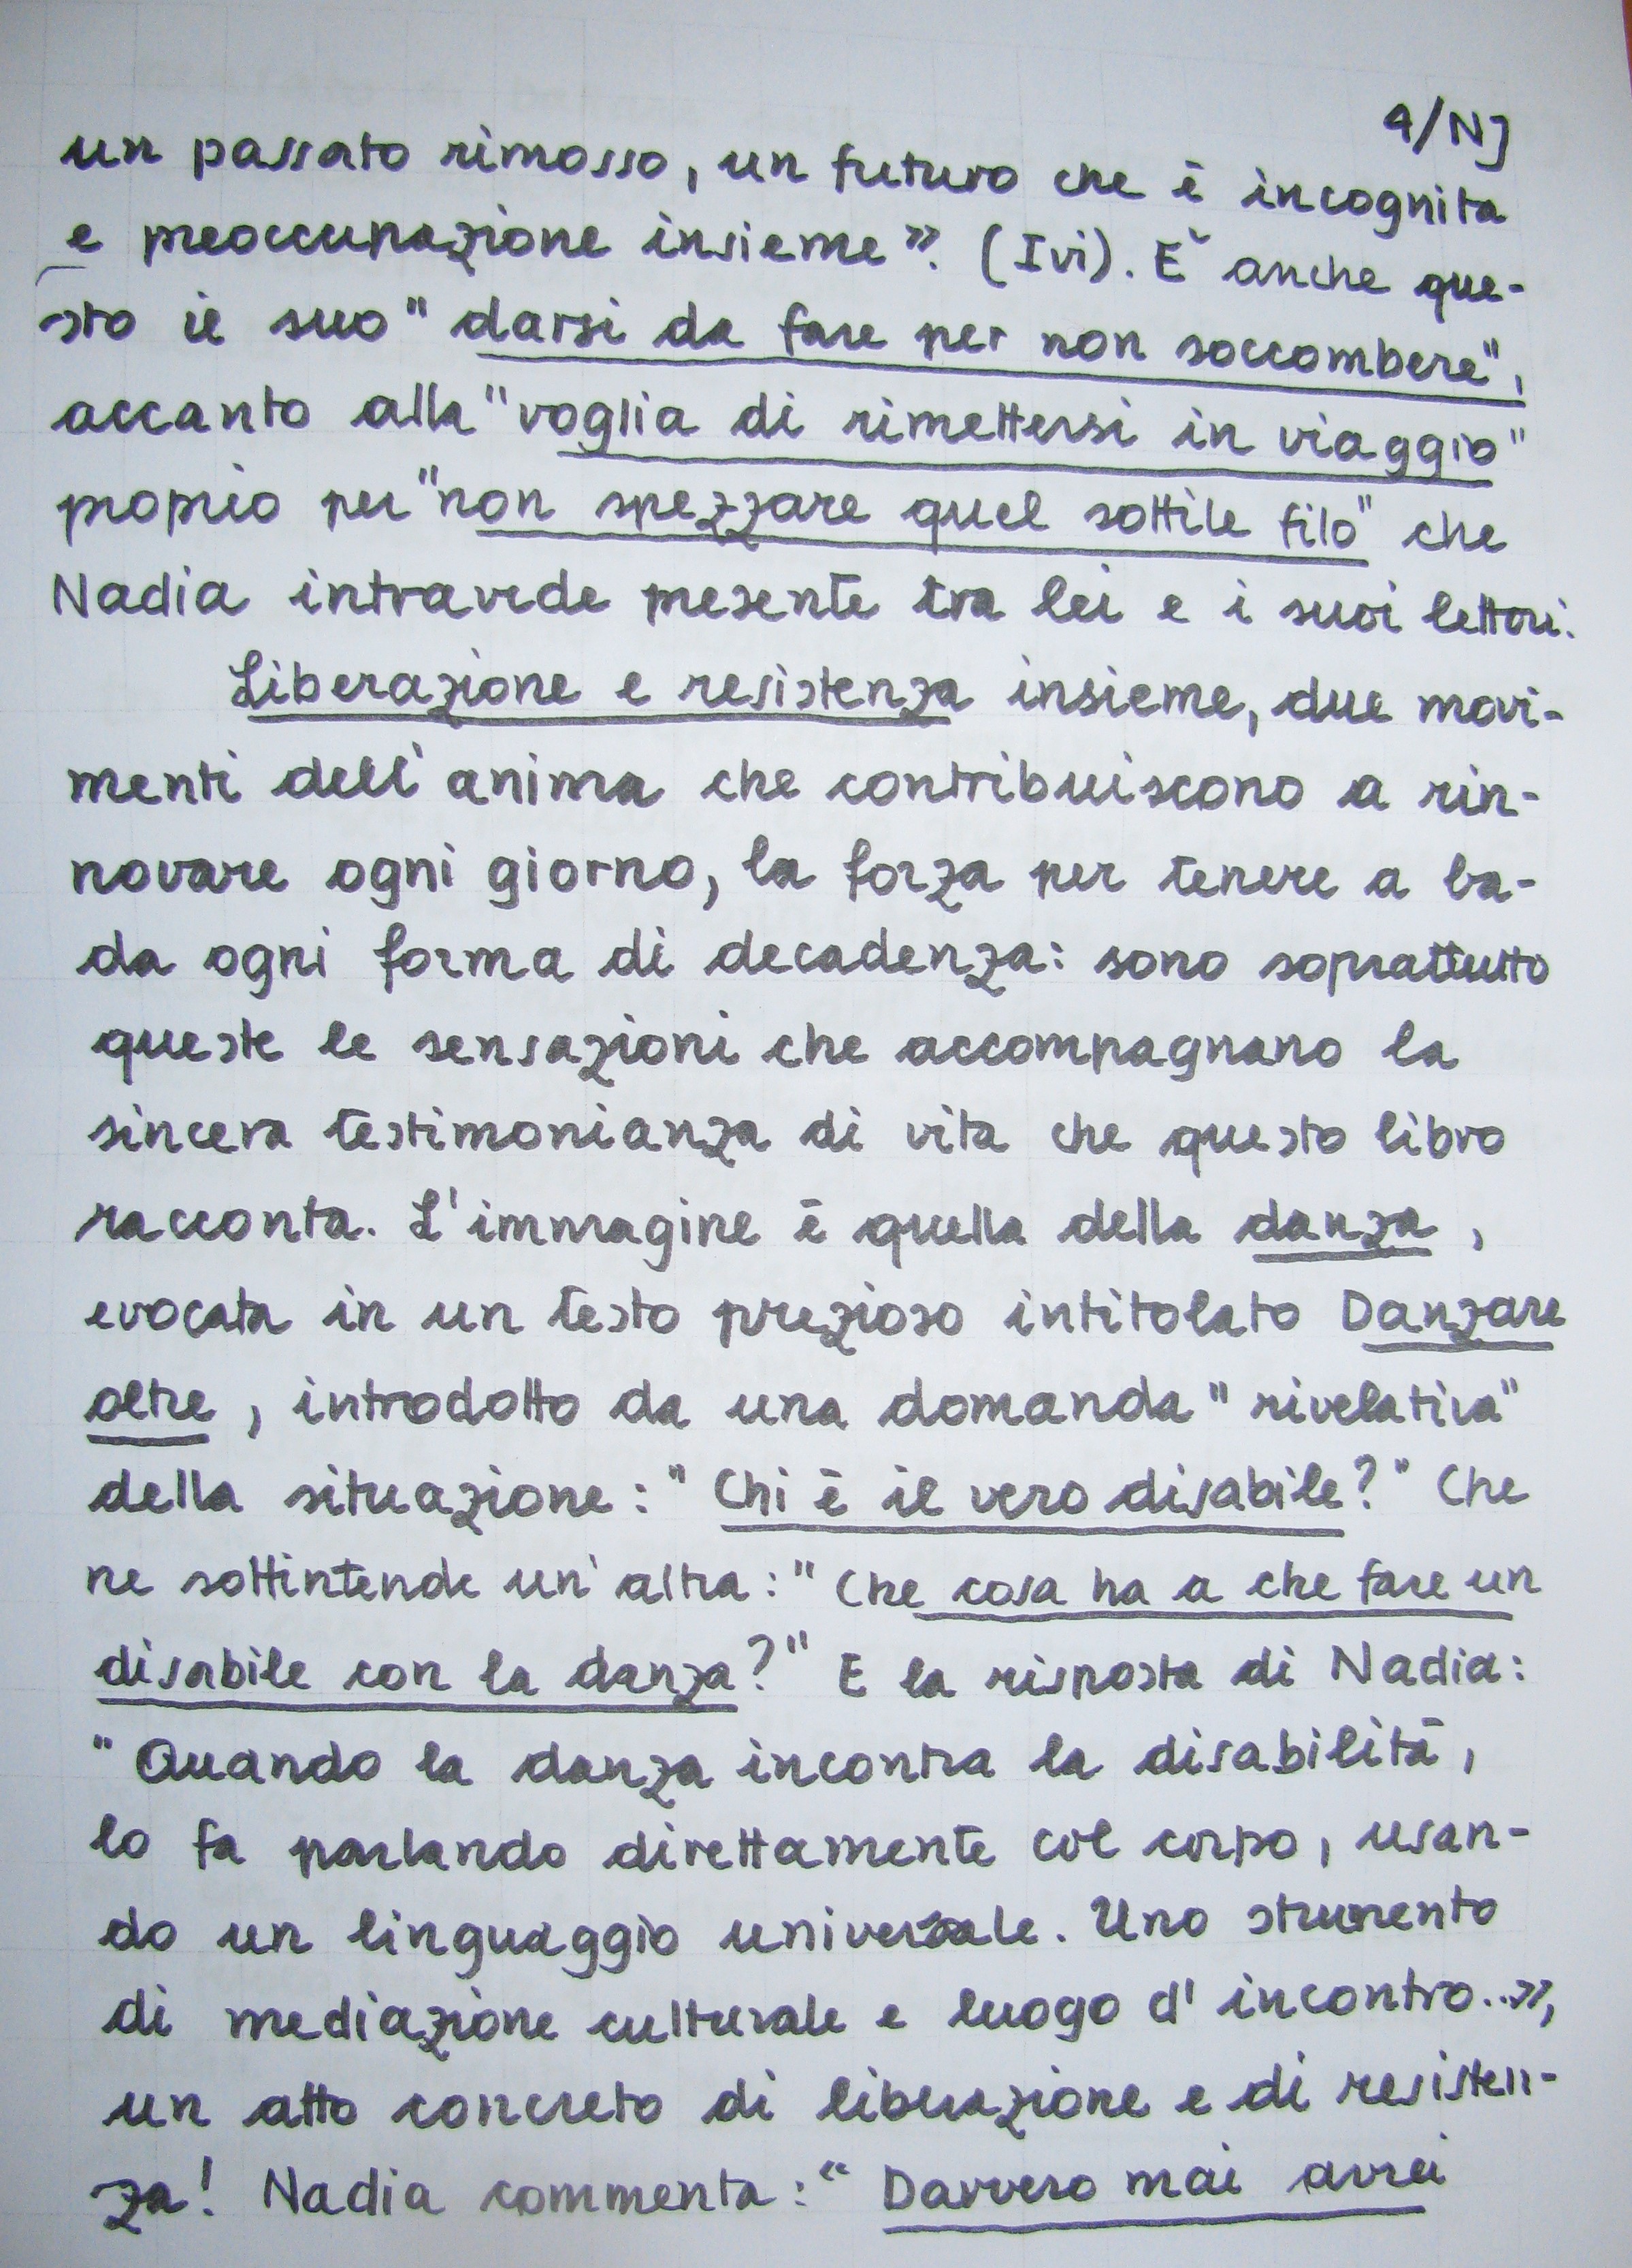 4/NJ
un passato rimosso, un futuro che è incognita
e preoccupazione insieme». (Ivi). E' anche que-
sto il suo "darsi da fare per non soccombere",
accanto alla "voglia di rimettersi in viaggio"
proprio per "non spezzare quel sottile filo" che
Nadia intravede presente tra lei e i suoi lettori.
Liberazione e resistenza insieme, due movi-
menti dell'anima che contribuiscono a rin-
novare ogni giorno, la forza per tenere a ba-
da ogni forma di decadenza: sono soprattutto
queste le sensazioni che accompagnano la
sincera testimonianza di vita che questo libro
racconta. L'immagine è quella della danza,
evocata in un testo prezioso intitolato Danzare
oltre, introdotto da una domanda "rivelativa"
della situazione: "Chi è il vero disabile?" Che
ne sottintende un'altra: "Che cosa ha a che fare un
disabile con la danza?" E la risposta di Nadia:
"Quando la danza incontra la disabilità,
lo fa parlando direttamente col corpo, usan-
do un linguaggio universale. Uno strumento
di mediazione culturale e luogo d'incontro..»,
un atto concreto di liberazione e di resisten-
za! Nadia commenta: "Davvero mai avrei